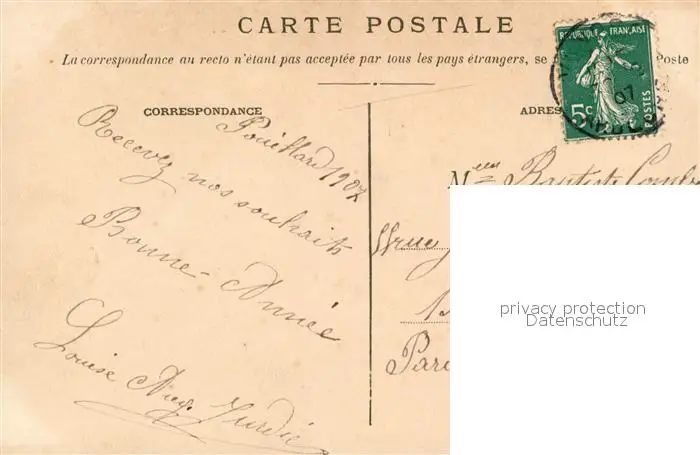 CARTE POSTALE
La correspondance au recto n'étant pas acceptée par tous les pays étrangers, se Poste
CORRESPONDANCE
ADRES
REPUBLIQUE FRANÇAISE
5c
POSTES
07
1907
Recevez nos souhaits
Bonne-Année
Louise Aug.
Baptiste
rue
Par
privacy protection
Datenschutz